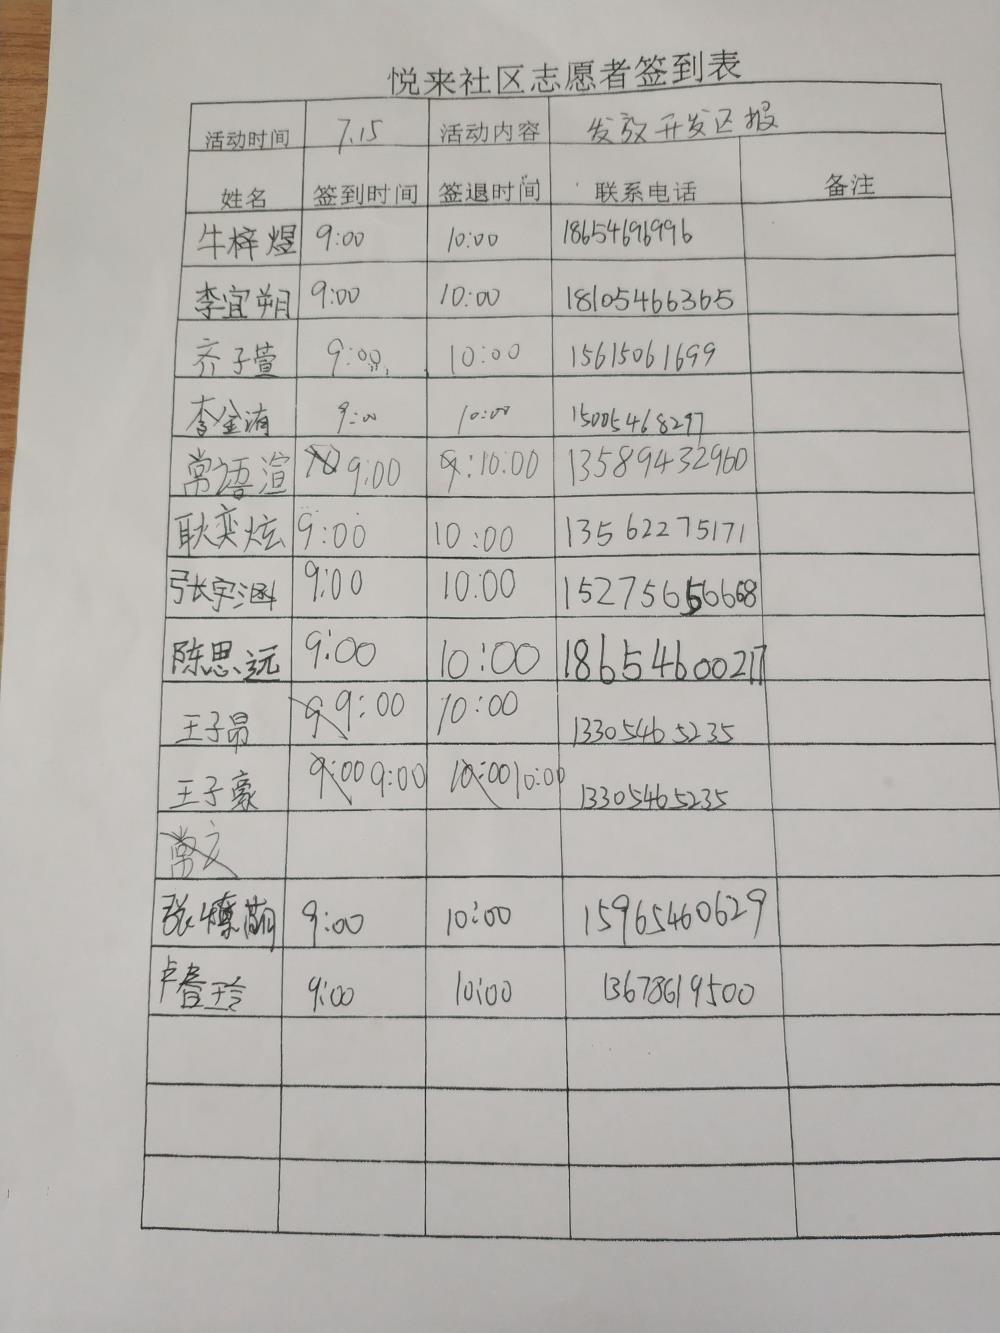 悦来社区志愿者签到表
活动时间 7.15 活动内容 发放开发区报
姓名 签到时间 签退时间 联系电话 备注
牛梓煜 9:00 10:00 18654696996
李宜朔 9:00 10:00 18105466365
齐子萱 9:00 10:00 15615061699
李金洧 9:00 10:00 15005468297
常语渲 9:00 10:00 13589432960
耿奕炫 9:00 10:00 13562275171
张宇涵 9:00 10:00 15275656668
陈思远 9:00 10:00 18654600217
王子昂 9:00 10:00 13305465235
王子豪 9:00 10:00 13305465235
常文
张 9:00 10:00 15965460629
卢 玲 9:00 10:00 13678619500